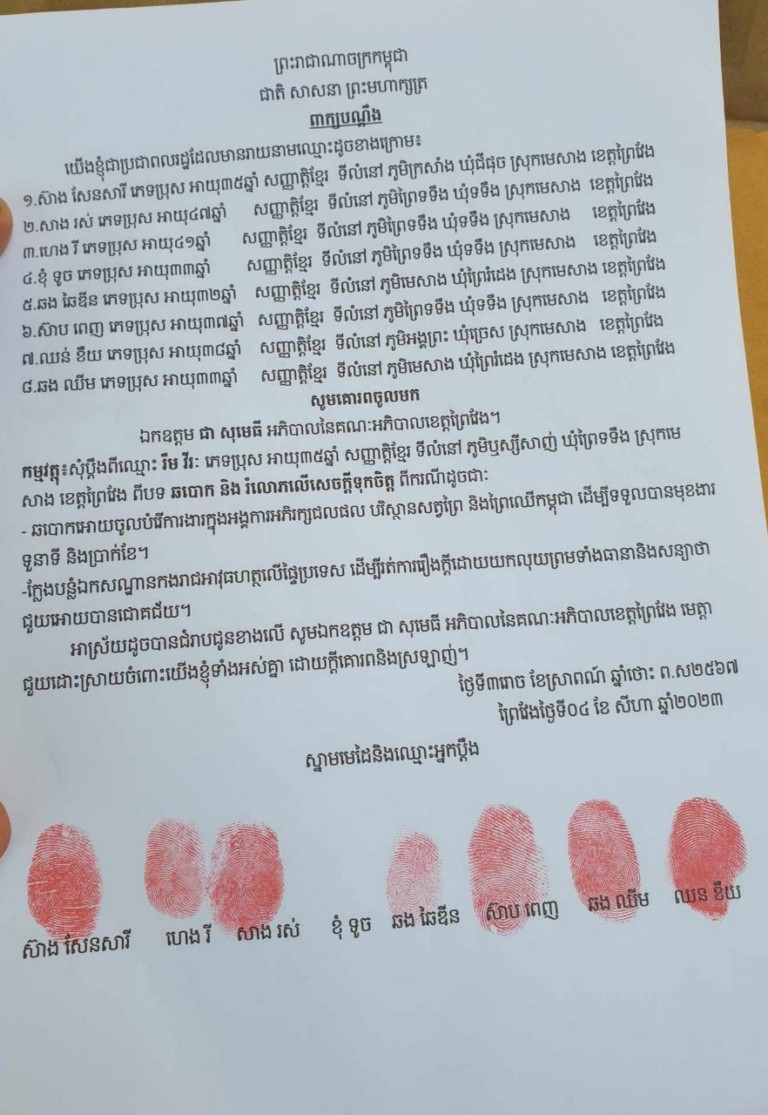 ព្រះរាជាណាចក្រកម្ពុជា
ជាតិ សាសនា ព្រះមហាក្សត្រ
ពាក្យបណ្ដឹង
យើងខ្ញុំជាប្រជាពលរដ្ឋដែលមានរាយនាមឈ្មោះដូចខាងក្រោម៖
១.ស៊ាង សែនសារី ភេទប្រុស អាយុ៣៥ឆ្នាំ សញ្ញាត្តិខ្មែរ ទីលំនៅ ភូមិក្រសាំង ឃុំជីផុច ស្រុកមេសាង ខេត្តព្រៃវែង
២.សាង រស់ ភេទប្រុស អាយុ៤៧ឆ្នាំ សញ្ញាត្តិខ្មែរ ទីលំនៅ ភូមិព្រៃទទឹង ឃុំទទឹង ស្រុកមេសាង ខេត្តព្រៃវែង
៣.ហេង រី ភេទប្រុស អាយុ៤១ឆ្នាំ សញ្ញាត្តិខ្មែរ ទីលំនៅ ភូមិព្រៃទទឹង ឃុំទទឹង ស្រុកមេសាង ខេត្តព្រៃវែង
៤.ខុំ ទូច ភេទប្រុស អាយុ៣៣ឆ្នាំ សញ្ញាត្តិខ្មែរ ទីលំនៅ ភូមិព្រៃទទឹង ឃុំទទឹង ស្រុកមេសាង ខេត្តព្រៃវែង
៥.ឆង ឆៃឌីន ភេទប្រុស អាយុ៣២ឆ្នាំ សញ្ញាត្តិខ្មែរ ទីលំនៅ ភូមិមេសាង ឃុំព្រៃរំដេង ស្រុកមេសាង ខេត្តព្រៃវែង
៦.ស៊ាប ពេញ ភេទប្រុស អាយុ៣៧ឆ្នាំ សញ្ញាត្តិខ្មែរ ទីលំនៅ ភូមិព្រៃទទឹង ឃុំទទឹង ស្រុកមេសាង ខេត្តព្រៃវែង
៧.ឈន់ ខឺយ ភេទប្រុស អាយុ៣៨ឆ្នាំ សញ្ញាត្តិខ្មែរ ទីលំនៅ ភូមិអង្គព្រះ ឃុំច្រេស ស្រុកមេសាង ខេត្តព្រៃវែង
៨.ឆង ឈីម ភេទប្រុស អាយុ៣៣ឆ្នាំ សញ្ញាត្តិខ្មែរ ទីលំនៅ ភូមិមេសាង ឃុំព្រៃរំដេង ស្រុកមេសាង ខេត្តព្រៃវែង
សូមគោរពចូលមក
ឯកឧត្តម ជា សុមេធី អភិបាលនៃគណៈអភិបាលខេត្តព្រៃវែង។
កម្មវត្ថុ៖សុំប្ដឹងពីឈ្មោះ រឹម វីរៈ ភេទប្រុស អាយុ៣៥ឆ្នាំ សញ្ញាត្តិខ្មែរ ទីលំនៅ ភូមិឬស្សីសាញ់ ឃុំព្រៃទទឹង ស្រុកមេ
សាង ខេត្តព្រៃវែង ពីបទ ឆបោក និង រំលោភលើសេចក្ដីទុកចិត្ត ពីករណីដូចជាៈ
- ឆបោកអោយចូលបំរើការងារក្នុងអង្គការអភិរក្សជលផល បរិស្ថានសត្វព្រៃ និងព្រៃឈើកម្ពុជា ដើម្បីទទួលបានមុខងារ
តួនាទី និងប្រាក់ខែ។
-ក្លែងបន្លំឯកសណ្ឋានកងរាជអាវុធហត្ថលើផ្ទៃប្រទេស ដើម្បីរត់ការរឿងក្ដីដោយយកលុយព្រមទាំងធានានិងសន្យាថា
ជួយអោយបានជោគជ័យ។
អាស្រ័យដូចបានជំរាបជូនខាងលើ សូមឯកឧត្តម ជា សុមេធី អភិបាលនៃគណៈអភិបាលខេត្តព្រៃវែង មេត្តា
ជួយដោះស្រាយចំពោះយើងខ្ញុំទាំងអស់គ្នា ដោយក្ដីគោរពនិងស្រឡាញ់។
ថ្ងៃទី៣រោច ខែស្រាពណ៍ ឆ្នាំថោះ ព.ស២៥៦៧
ព្រៃវែងថ្ងៃទី០៤ ខែ សីហា ឆ្នាំ២០២៣
ស្នាមមេដៃនិងឈ្មោះអ្នកប្ដឹង
ស៊ាង សែនសារី ហេង រី សាង រស់ ខុំ ទូច ឆង ឆៃឌីន ស៊ាប ពេញ ឆង ឈីម ឈន ខឺយ